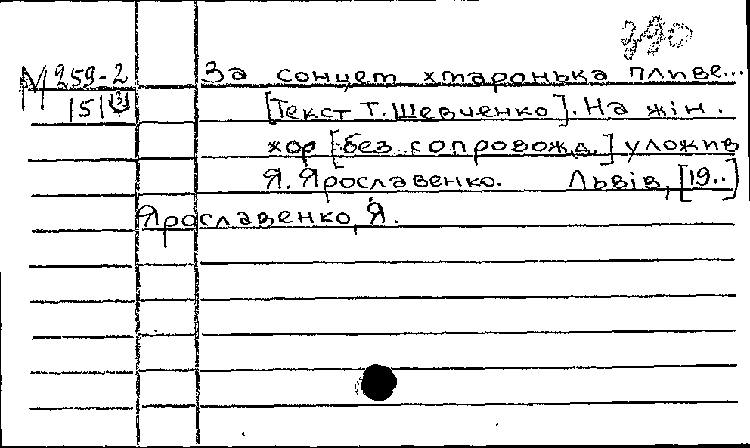 390
М 259-2 За сонцем хмаронька пливе...
151(3) [Текст Т. Шевченко]. На жін.
хор [без сопровожд.] уложив
Я. Ярославенко. Львів, [19..]
Ярославенко, Я.